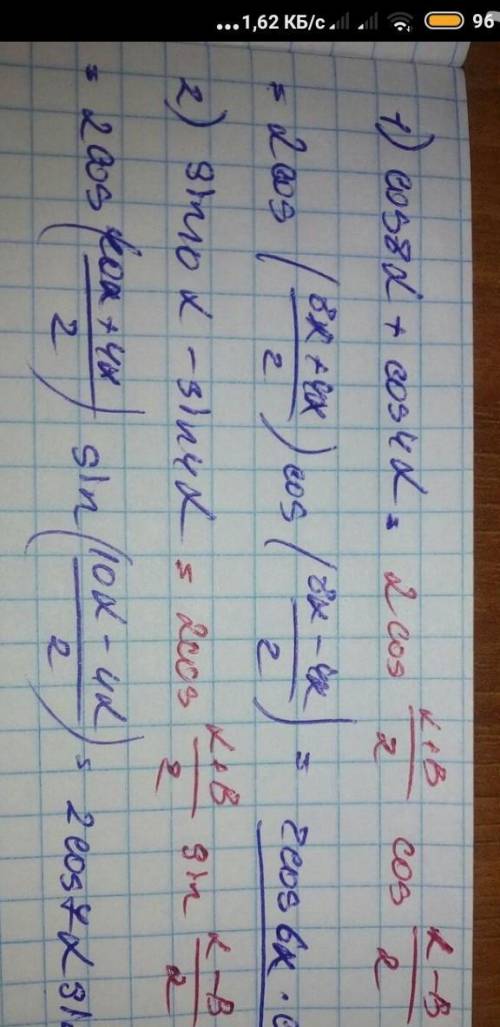 ...1,62 КБ/с 96
1) cos8α + cos4α = 2cos α+B/2 cos α-B/2
= 2cos (8α+4α/2) cos (8α-4α/2) = 2cos6α ·
2) sin10α - sin4α = 2cos α+B/2 sin α-B/2
= 2cos (10α+4α/2) sin (10α-4α/2) = 2cos7α